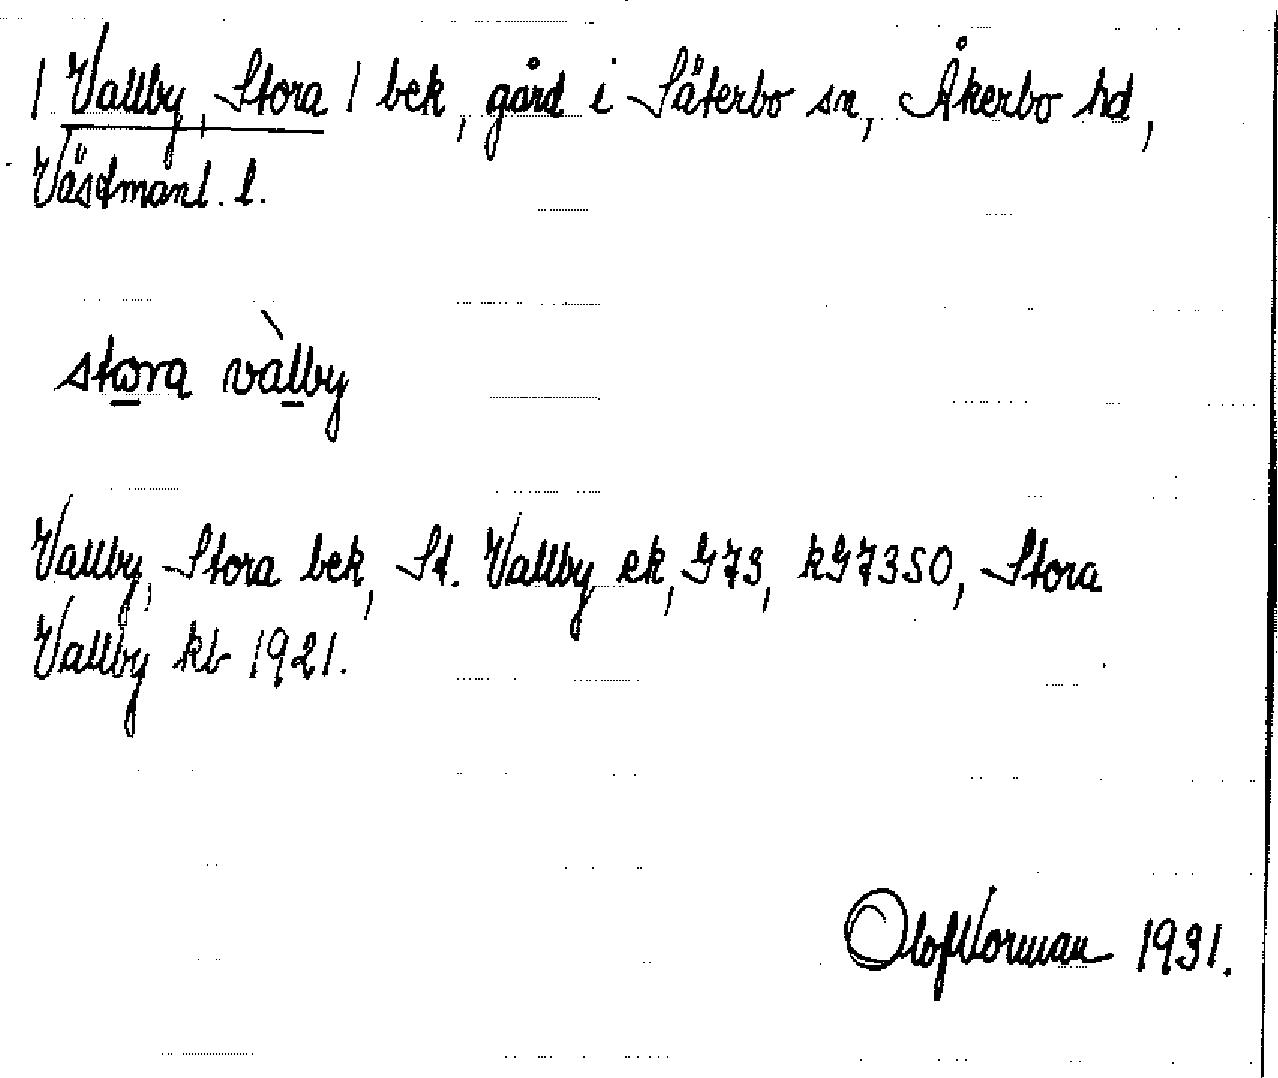 / Vallby, Stora / bek, gård i Säterbo sn, Åkerbo hd,
Västmanl. l.
stora vàlby
Vallby, Stora bek, St. Vallby ek, G73, kG7350, Stora
Vallby kb 1921.
Olof Norman 1931.